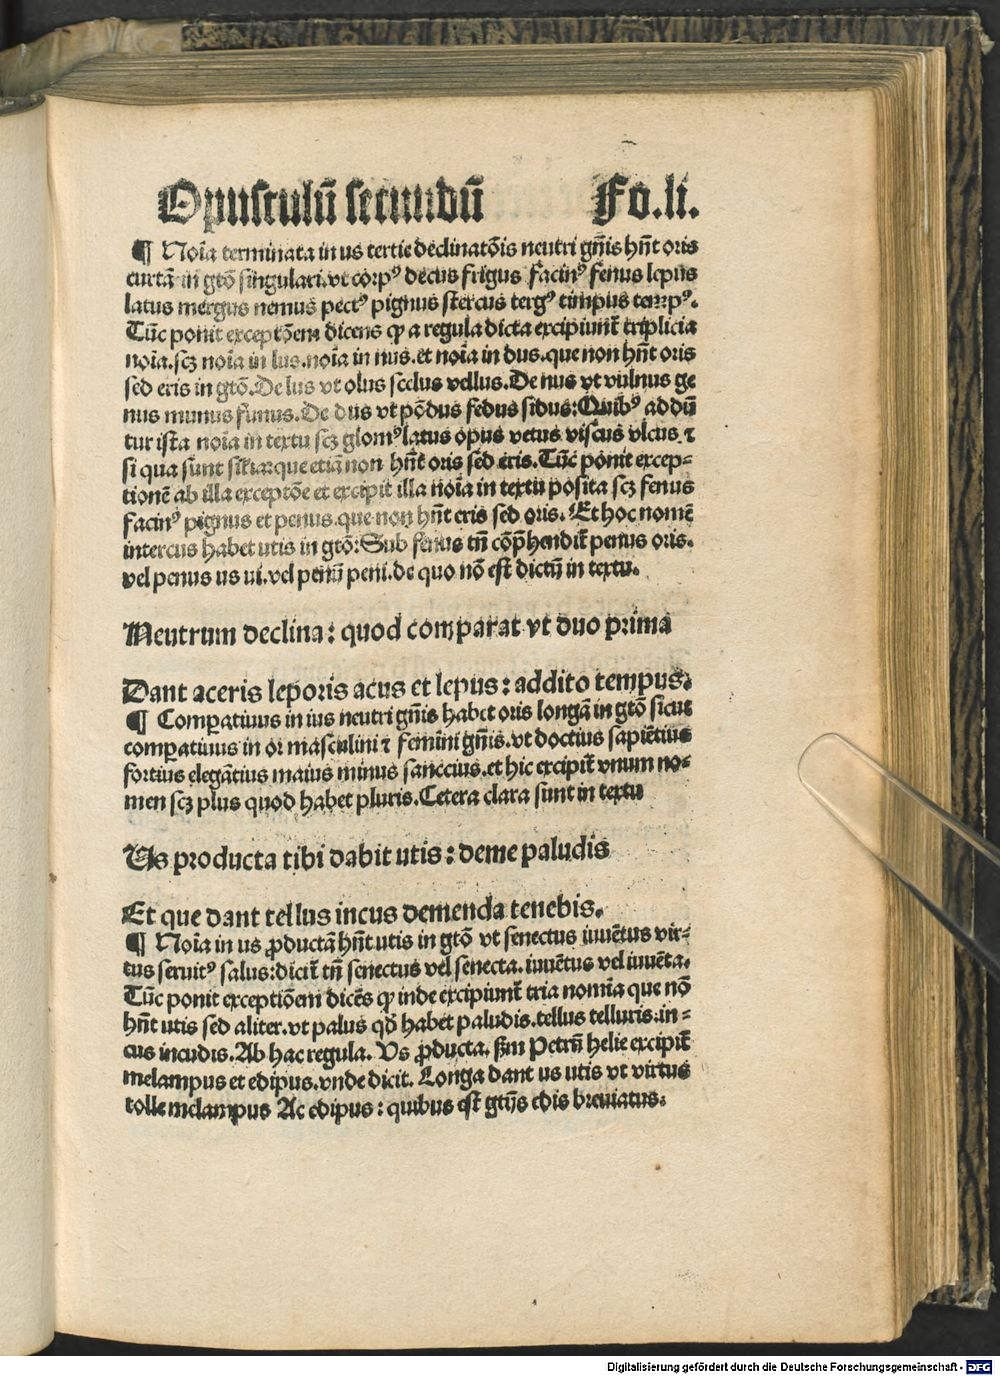 Opusculū secundū Fo.li.
¶ Noīa terminata in us tertie declinatōis neutri gn̄is hn̄t oris
curtā in gtō singulari.vt corpꝰ decus frigus facinꝰ fenus lepus
latus mergus nemus pectꝰ pignus stercus tergꝰ timpus tempꝰ.
Tūc ponit exceptōem dicens ꝙ a regula dicta excipiunt̄ triplicia
noīa.scꝫ noīa in lus.noīa in nus.et noīa in dus.que non hn̄t oris
sed eris in gtō.De lus vt olus scelus vellus.De nus vt vulnus ge
nus munus funus.De dus vt pōdus fedus sidus:Quibꝰ addū
tur ista noīa in textu scꝫ glomꝰ latus opus vetus viscus vlcus ⁊
si qua sunt sil̄ia:que etiā non hn̄t oris sed eris.Tūc ponit excep-
tionē ab illa exceptōe et excipit illa noīa in textu posita scꝫ fenus
facinꝰ pignus et penus.que non hn̄t eris sed oris. Et hoc nomē
intercus habet utis in gtō:Sub fenus tn̄ cōp̄hendit̄ penus oris.
vel penus us ui.vel penū peni.de quo nō est dictū in textu.
Neutrum declina: quod comparat vt duo prima
Dant aceris leporis acus et lepus: addito tempus.
¶ Comꝑatiuus in ius neutri gn̄is habet oris longā in gtō sicut
comꝑatiuus in or masculini ⁊ femini gn̄is.vt doctius sapiētius
fortius elegātius maius minus sanccius.et hic excipit̄ vnum no-
men scꝫ plus quod habet pluris.Cetera clara sunt in textu
Us producta tibi dabit utis: deme paludis
Et que dant tellus incus demenda tenebis.
¶ Noīa in us ꝓductā hn̄t utis in gtō vt senectus iuuētus vir-
tus seruitꝰ salus:dicit̄ tn̄ senectus vel senecta.iuuētus vel iuuēta.
Tūc ponit exceptiōem dicēs ꝙ inde excipiunt̄ tria nomīa que nō
hn̄t utis sed aliter.vt palus qd̄ habet paludis.tellus telluris.in-
cus incudis.Ab hac regula. Us ꝓducta. ẜm Petrū helie excipit̄
melampus et edipus.vnde dicit. Longa dant us utis vt virtus
tolle melampus Ac edipus: quibus est gtӱs edis breuiatus.
Digitalisierung gefördert durch die Deutsche Forschungsgemeinschaft - DFG